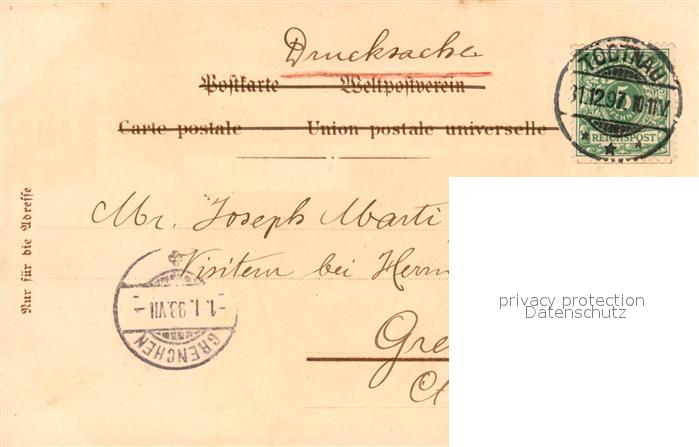 Drucksache
Postkarte Weltpostverein
Carte postale Union postale universelle
TODTNAU
31.12.97. 10-11V
5
REICHSPOST
Nur für die Adresse
Mr. Joseph Marti
Visiteur bei Herrn
Gre
privacy protection
Datenschutz
GRENCHEN